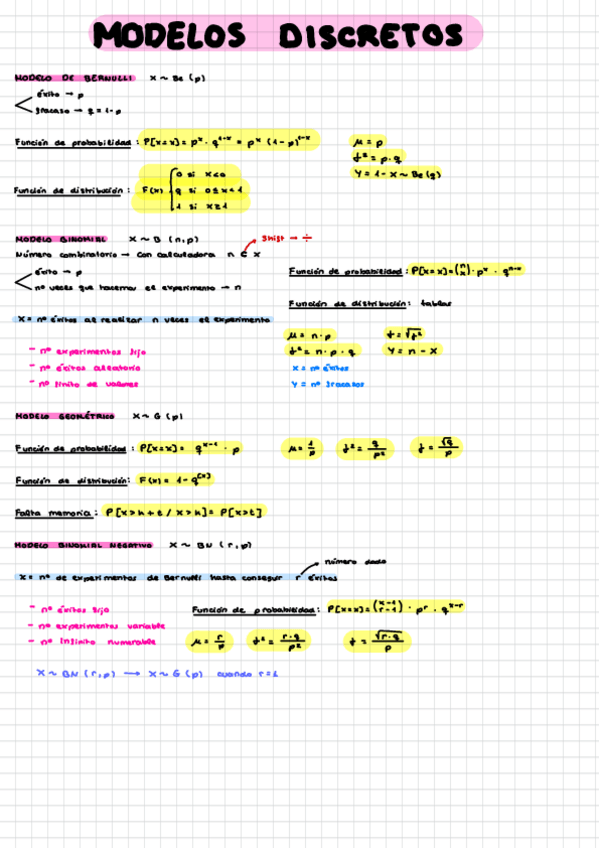 MODELOS DISCRETOS
MODELO DE BERNULLI X ~ Be (p)
éxito → p
fracaso → q = 1-p
Función de probabilidad: P[X=x] = pˣ · q¹⁻ˣ = pˣ (1-p)¹⁻ˣ
μ = p
σ² = p·q
Y = 1-X ~ Be(q)
Función de distribución: F(x) { 0 si x<0
q si 0≤x<1
1 si x≥1
MODELO BINOMIAL X ~ B (n,p)
Shift → ÷
Número combinatorio → con calculadora n C x
éxito → p
no veces que hacemos el experimento → n
Función de probabilidad: P[X=x] = (n x) · pˣ · qⁿ⁻ˣ
Función de distribución: tablas
X = nº éxitos al realizar n veces el experimento
μ = n·p σ = √σ²
σ² = n·p·q Y = n - X
X = nº éxitos
Y = nº fracasos
- nº experimentos fijo
- nº éxitos aleatorio
- nº finito de valores
MODELO GEOMÉTRICO X ~ G (p)
Función de probabilidad: P[X=x] = qˣ⁻¹ · p μ = 1/p σ² = q/p² σ = √q/p
Función de distribución: F(x) = 1 - q^[x]
Falta memoria: P[X>h+t / X>h] = P[X>t]
MODELO BINOMIAL NEGATIVO X ~ BN (r,p)
número dado
X = nº de experimentos de Bernulli hasta conseguir r éxitos
- nº éxitos fijo
- nº experimentos variable
- nº infinito numerable
Función de probabilidad: P[X=x] = (x-1 r-1) · pʳ · qˣ⁻ʳ
μ = r/p σ² = r·q/p² σ = √r·q/p
X ~ BN (r,p) → X ~ G (p) cuando r=1